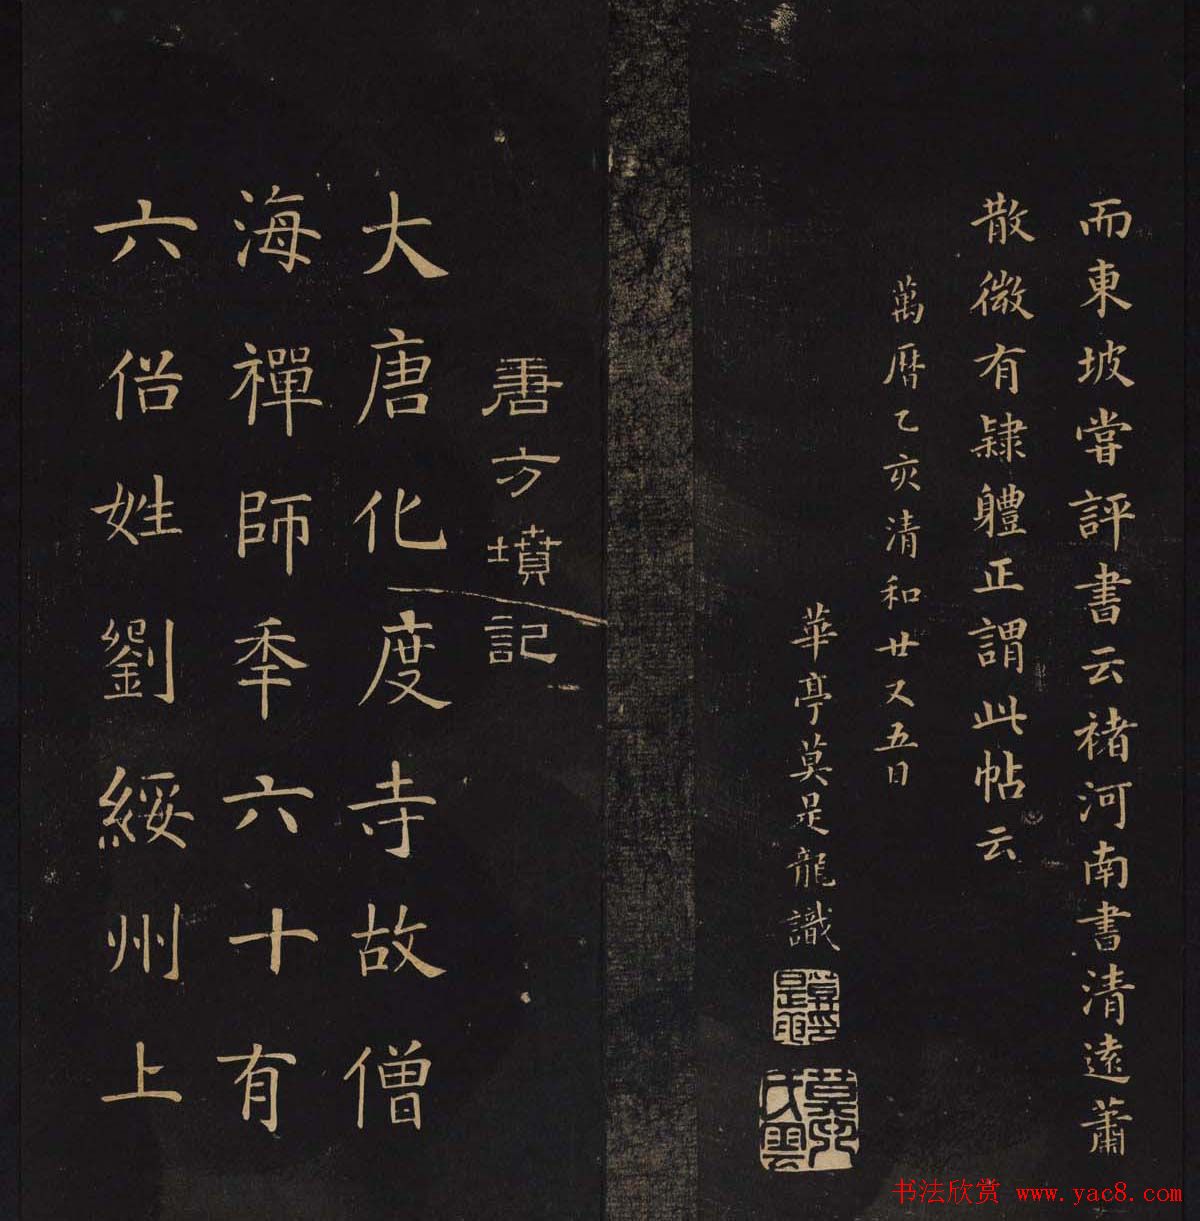 而東坡嘗評書云褚河南書清遠蕭
散微有隸體正謂此帖云
萬曆乙亥清和廿又五日
華亭莫是龍識
唐方墳記
大唐化度寺故僧
海禪師年六十有
六俗姓劉綏州上
书法欣赏 www.yac8.com